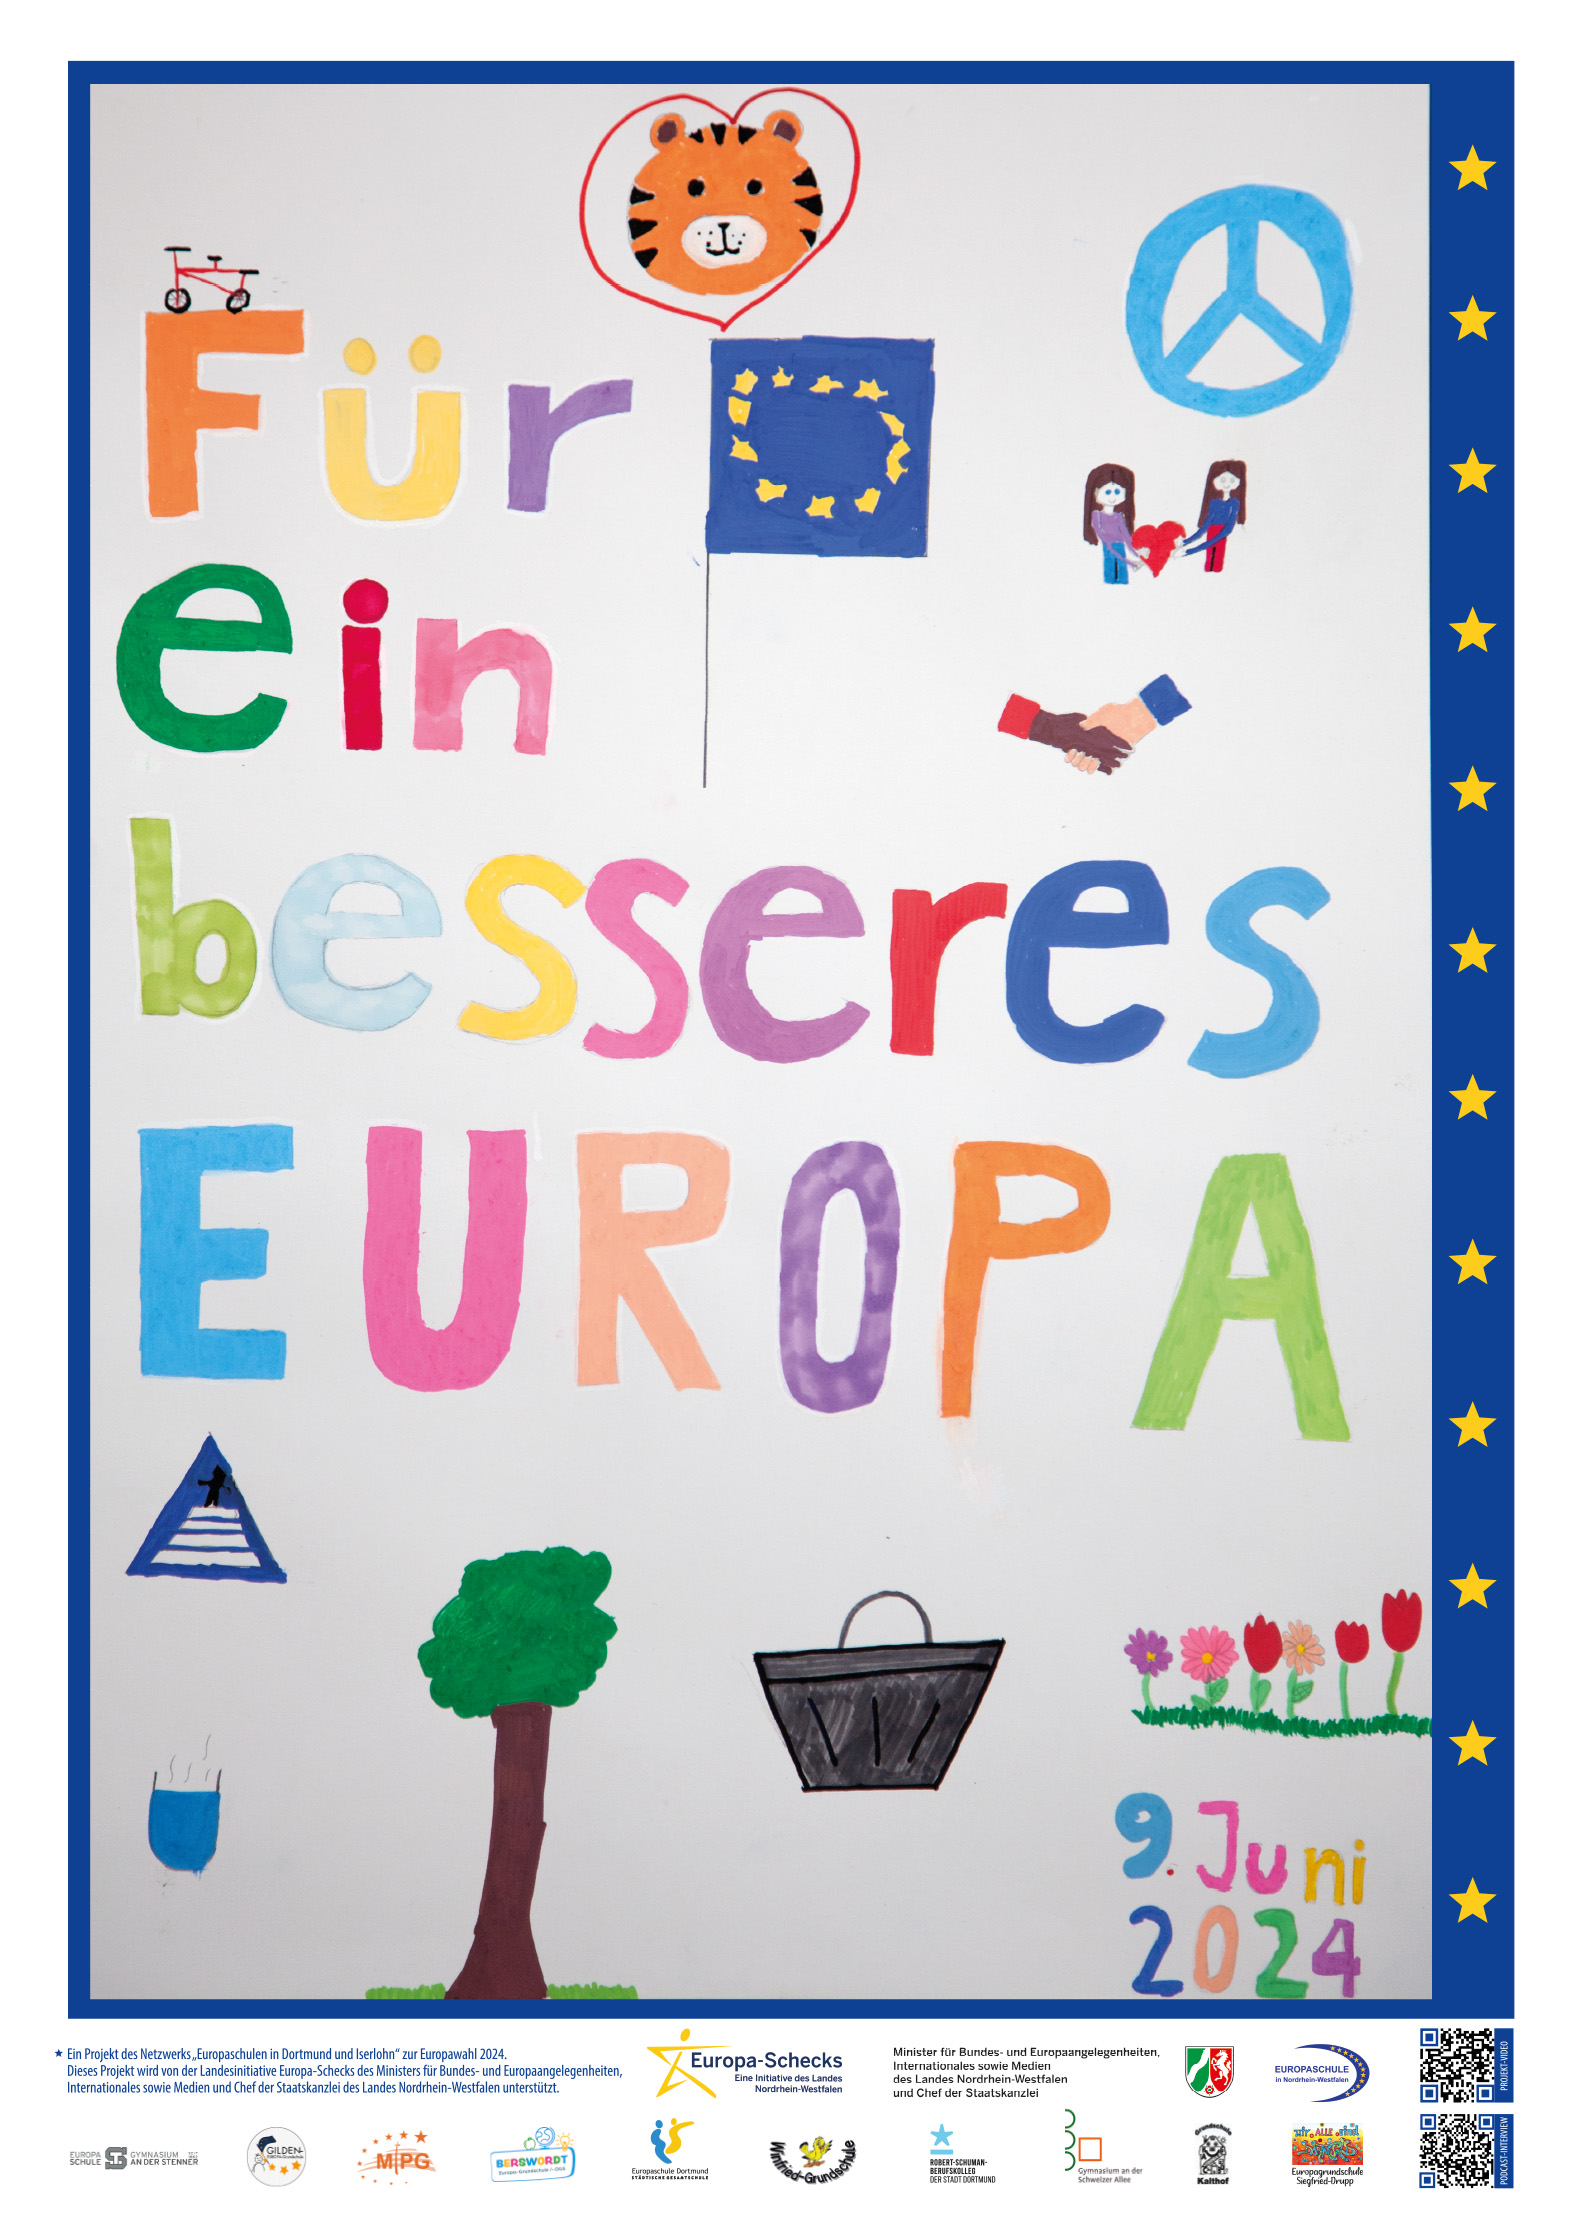 Für
ein
besseres
EUROPA
9. Juni
2024
Ein Projekt des Netzwerks „Europaschulen in Dortmund und Iserlohn“ zur Europawahl 2024.
Dieses Projekt wird von der Landesinitiative Europa-Schecks des Ministers für Bundes- und Europaangelegenheiten,
Internationales sowie Medien und Chef der Staatskanzlei des Landes Nordrhein-Westfalen unterstützt.
Europa-Schecks
Eine Initiative des Landes
Nordrhein-Westfalen
Minister für Bundes- und Europaangelegenheiten,
Internationales sowie Medien
des Landes Nordrhein-Westfalen
und Chef der Staatskanzlei
EUROPASCHULE
in Nordrhein-Westfalen
PROJEKT-VIDEO
EUROPA
SCHULE
GYMNASIUM
AN DER STENNER
GILDEN-
EUROPA-Grundschule
MPG
BERSWORDT
Europa-Grundschule
Europaschule Dortmund
STÄDTISCHE GESAMTSCHULE
Winfried-Grundschule
ROBERT-SCHUMAN-
BERUFSKOLLEG
DER STADT DORTMUND
Gymnasium an der
Schweizer Allee
Grundschule
Kalthof
WIR ALLE sind
Europagrundschule
Siegfried-Drupp
PODCAST-INTERVIEW